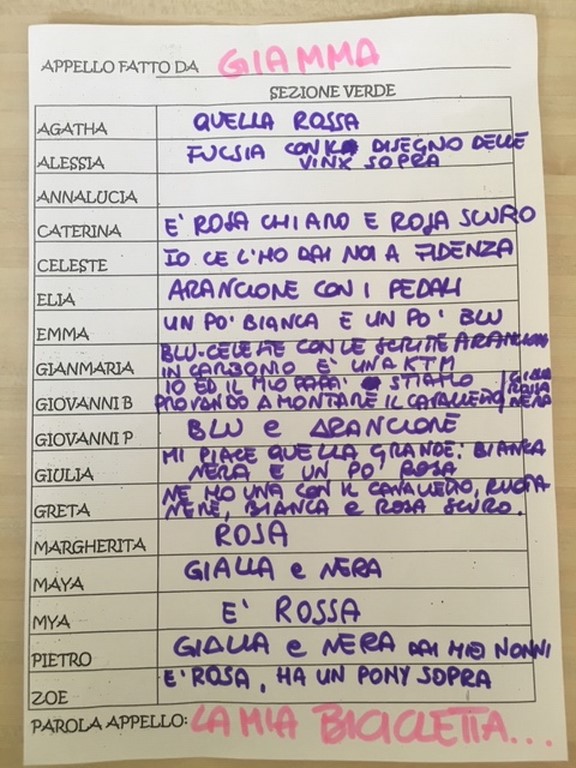 APPELLO FATTO DA GIAMMA
SEZIONE VERDE
AGATHA QUELLA ROSSA
ALESSIA FUCSIA CON DISEGNO DELLE
VINX SOPRA
ANNALUCIA
CATERINA E' ROSA CHIARO E ROSA SCURO
CELESTE IO CE L'HO DAI NONI A FIDENZA
ELIA ARANCIONE CON I PEDALI
EMMA UN PO' BIANCA E UN PO' BLU
GIANMARIA BLU-CELESTE CON LE SCRITTE ARANCIONI
IN CARBONIO E' UNA KTM
GIOVANNI B IO ED IL MIO PAPA' STIAMO
PROVANDO A MONTARE IL CAVALLETTO / GIALLA
ROSSA
NERA
GIOVANNI P BLU e ARANCIONE
GIULIA MI PIACE QUELLA GRANDE: BIANCA
NERA E UN PO' ROSA
GRETA NE HO UNA CON IL CAVALLETTO, RUOTA
NERE, BIANCA e ROSA SCURO.
MARGHERITA ROSA
MAYA GIALLA e NERA
MYA E' ROSSA
PIETRO GIALLA e NERA DAI MIEI NONNI
ZOE E' ROSA, HA UN PONY SOPRA
PAROLA APPELLO: LA MIA BICICLETTA...